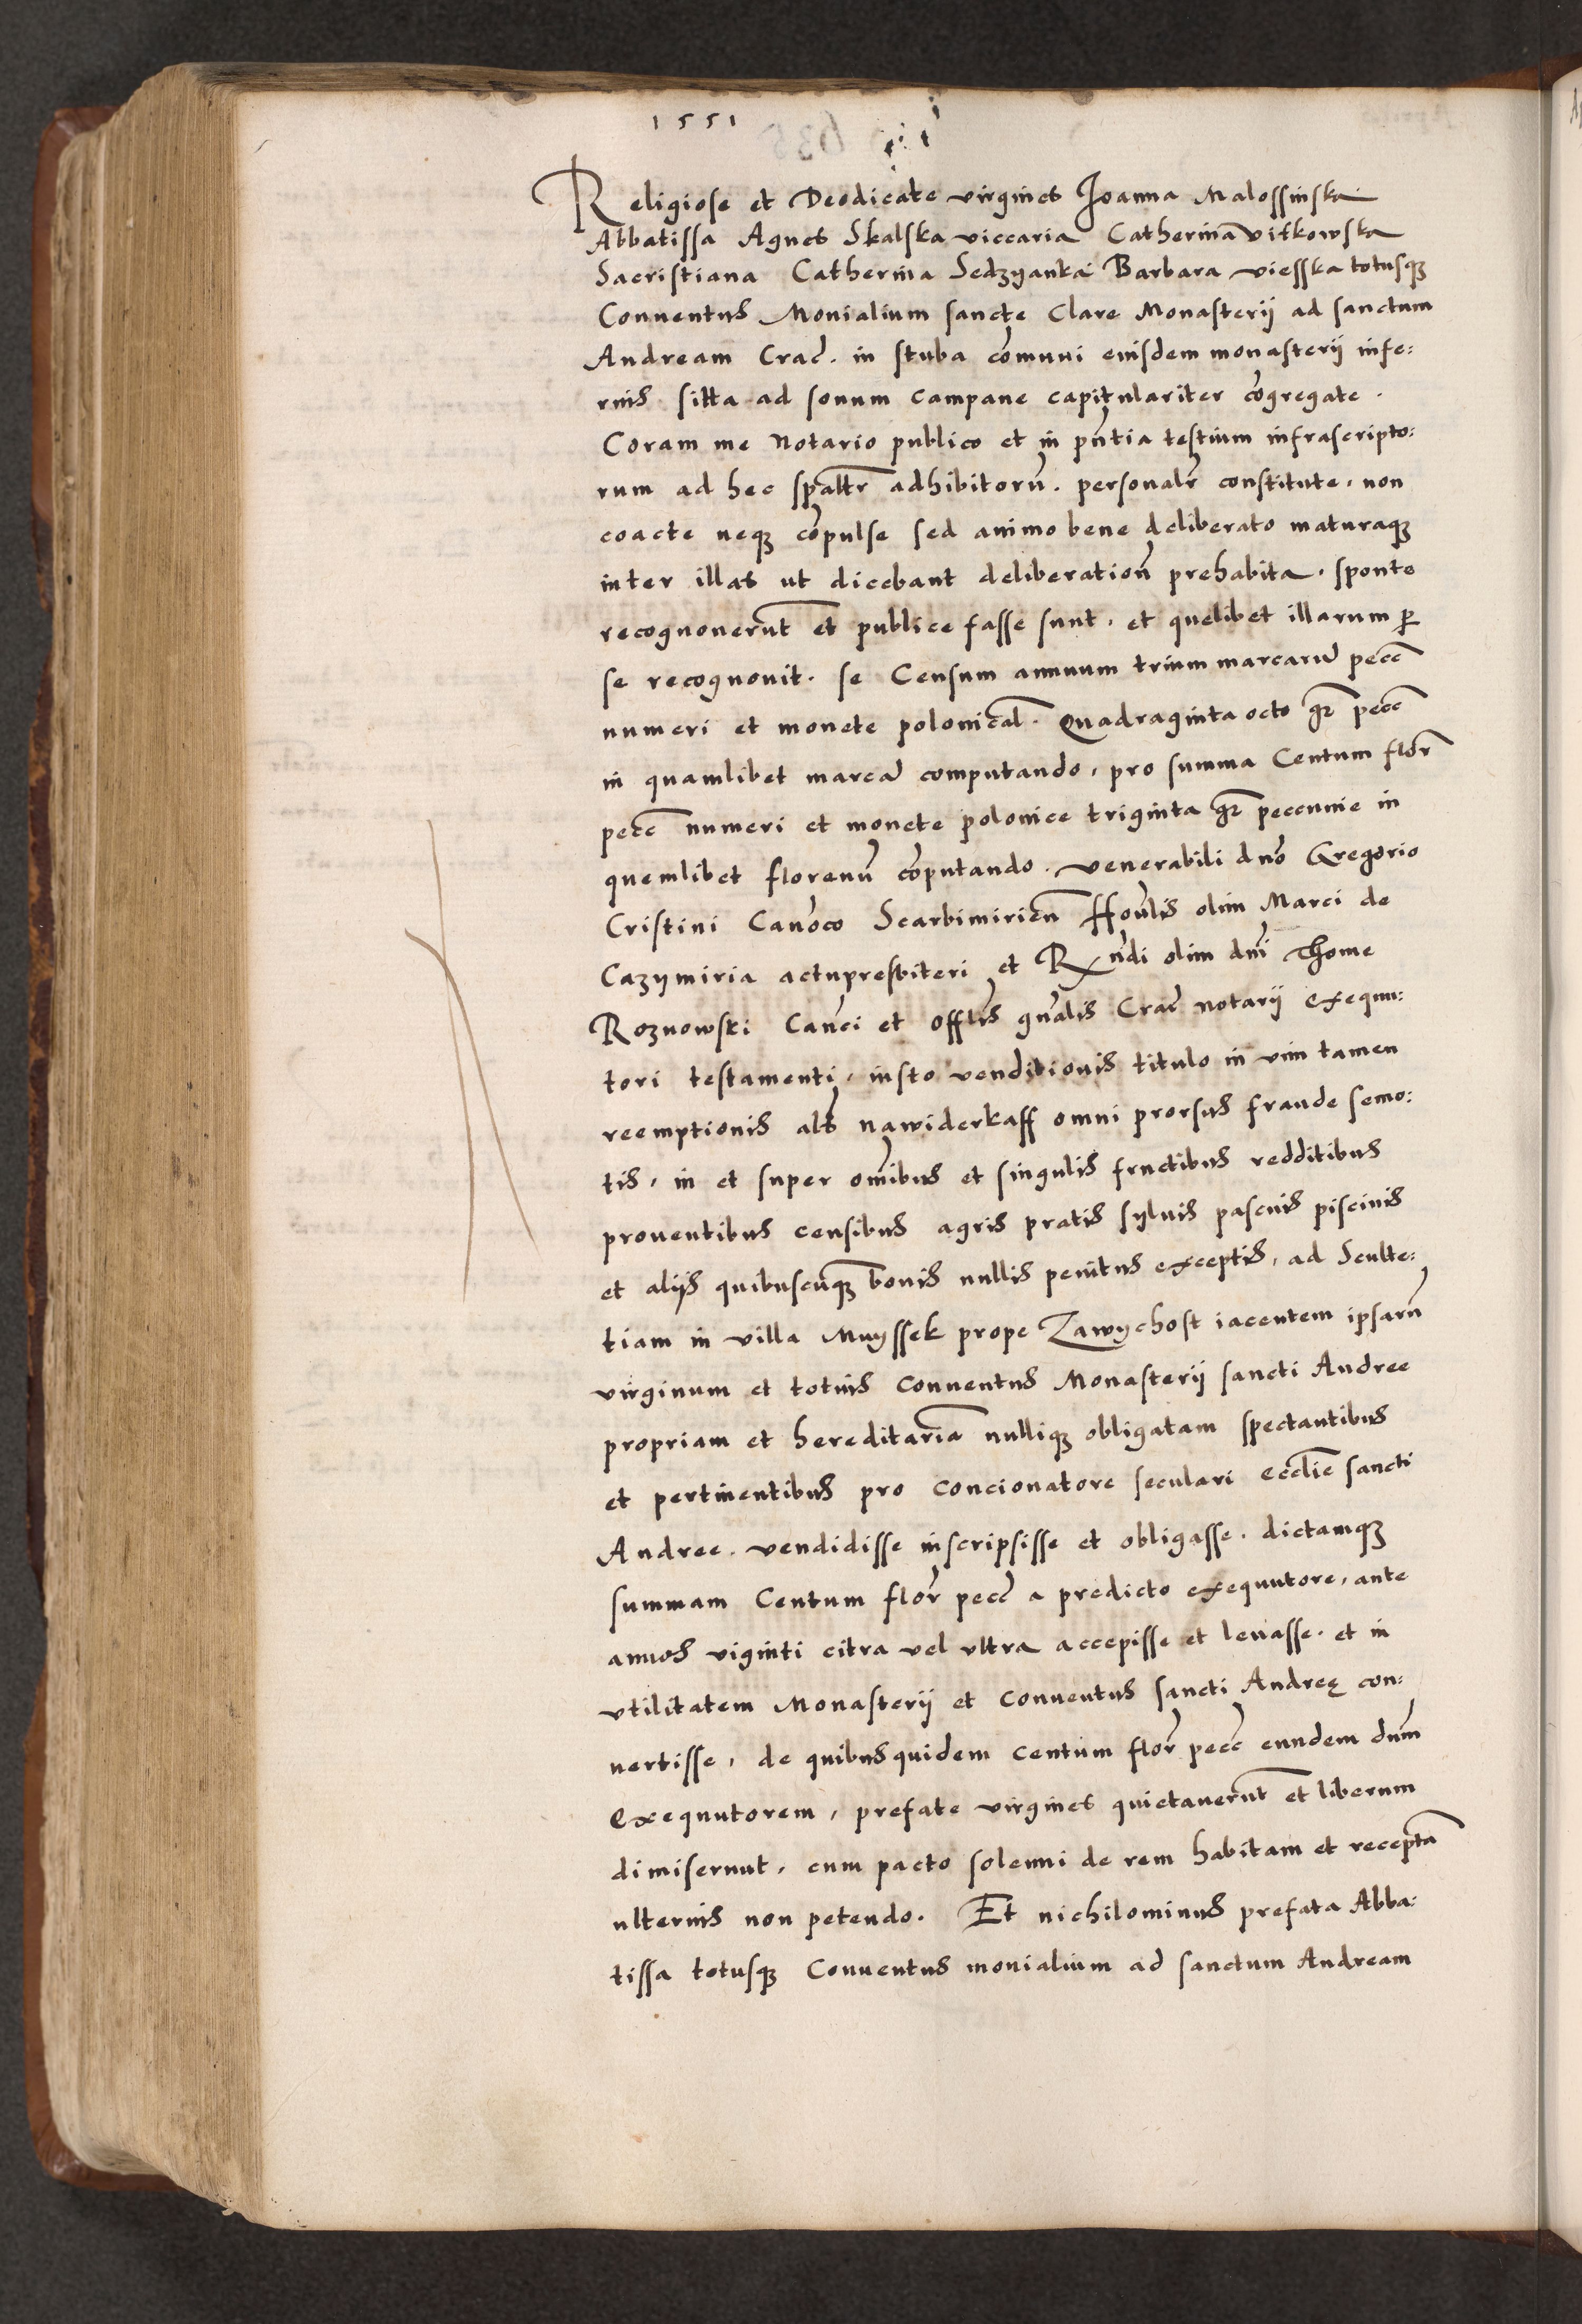 1551
Religiose et Deodicate virgines Joanna Malossinska
Abbatissa Agnes Skalska viccaria Catherina Vitkowska
Sacristiana Catherina Sedzyanka Barbara viesska totusq₃
Conuentus Monialium sancte Clare Monasterij ad sanctum
Andream Crac̄. in stuba cōmuni eiusdem monasterij infe:
rius sitta ad sonum campane capitulariter cōgregate.
Coram me Notario publico et in pn̄tia testium infrascripto:
rum ad hec sp̄altr̄ adhibitorū. personalr̄ constitute, non
coacte neq₃ cōpulse sed animo bene deliberato maturaq₃
inter illas ut dicebant deliberation̄ prehabita, sponte
recognouerūt et publice fasse sunt, et quelibet illarum ꝑ
se recognouit. se Censum annuum trium marcarū pecc̄
numeri et monete polonical̄. Quadraginta octo gr̄ pecc̄
in quamlibet marcā computando, pro summa Centum flor̄
pecc̄ numeri et monete polonice triginta gr̄ peccunie in
quemlibet florenū cōputando. venerabili dn̄o Gregorio
Cristini Canōco Scarbimirien̄ Hon̄lis olim Marci de
Cazymiria actupresbiteri et R̄n̄di olim dn̄i Thome
Roznowski Can̄ci et offl̄is gn̄alis Crac̄ notarij exequu:
tori testamenti, iusto venditionis titulo in vim tamen
reemptionis als̄ nawiderkaff omni prorsus fraude semo:
tis, in et super om̄ibus et singulis fructibus redditibus
prouentibus censibus agris pratis syluis pascuis piscinis
et alijs quibuscūq₃ bonis nullis penitus exceptis, ad Sculte:
tiam in villa Muyssek prope Zawychost iacentem ipsarū
virginum et totius conuentus Monasterij sancti Andree
propriam et hereditariā nulliq₃ obligatam spectantibus
et pertinentibus pro concionatore seculari eccl̄ie sancti
Andree. vendidisse inscripsisse et obligasse. dictamq₃
summam Centum flor̄ pecc̄ a predicto exequutore, ante
annos viginti citra vel vltra accepisse et leuasse. et in
vtilitatem Monasterij et Conuentus sancti Andreę con:
uertisse, de quibus quidem centum flor̄ pecc̄ eundem dn̄m
Exequutorem, prefate virgines quietauerūt et liberum
dimiserunt, cum pacto solenni de rem habitam et receptā
ulterius non petendo. Et nichilominus prefata Abba:
tissa totusq₃ Conuentus monialium ad sanctum Andream